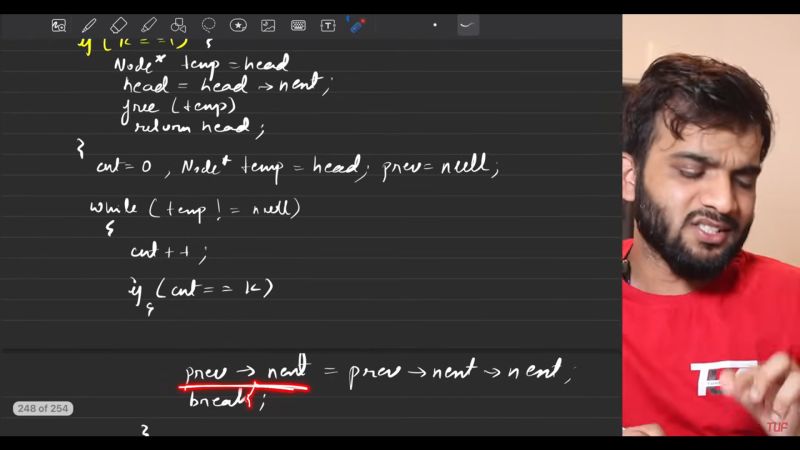 if (k == 1) {
Node* temp = head
head = head → next;
free (temp)
return head;
}
cnt = 0 , Node* temp = head; prev = null;
while (temp != null)
{
cnt ++ ;
if (cnt == k)
{
prev → next = prev → next → next;
break;
}
248 of 254
TUF
TUF